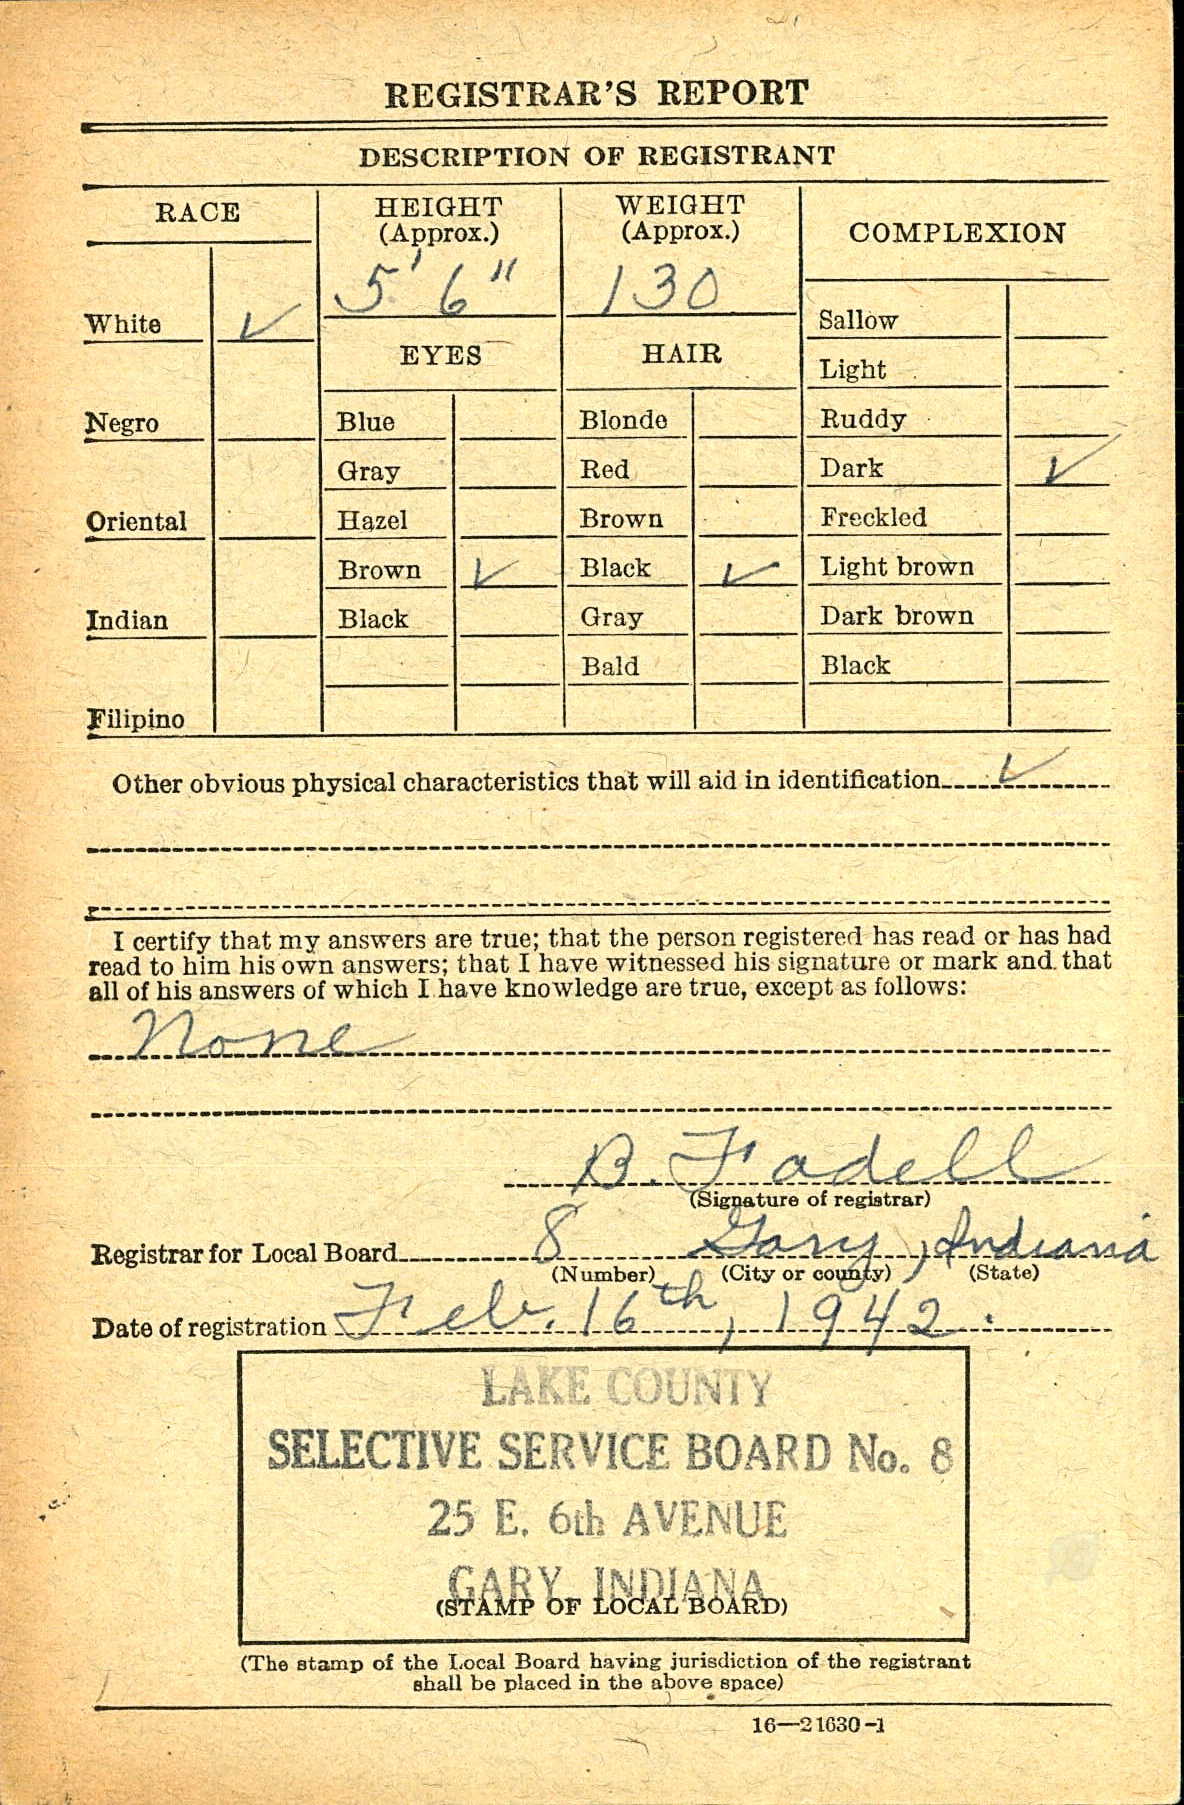 REGISTRAR'S REPORT
DESCRIPTION OF REGISTRANT
RACE
White ✓
Negro
Oriental
Indian
Filipino
HEIGHT
(Approx.)
5' 6"
WEIGHT
(Approx.)
130
EYES
Blue
Gray
Hazel
Brown ✓
Black
HAIR
Blonde
Red
Brown
Black ✓
Gray
Bald
COMPLEXION
Sallow
Light
Ruddy
Dark ✓
Freckled
Light brown
Dark brown
Black
Other obvious physical characteristics that will aid in identification ✓
I certify that my answers are true; that the person registered has read or has had
read to him his own answers; that I have witnessed his signature or mark and that
all of his answers of which I have knowledge are true, except as follows:
None
B. Fadell
(Signature of registrar)
Registrar for Local Board 8 Gary, Indiana
(Number) (City or county) (State)
Date of registration Feb. 16th, 1942.
LAKE COUNTY
SELECTIVE SERVICE BOARD No. 8
25 E. 6th AVENUE
GARY, INDIANA
(STAMP OF LOCAL BOARD)
(The stamp of the Local Board having jurisdiction of the registrant
shall be placed in the above space)
16—21630-1